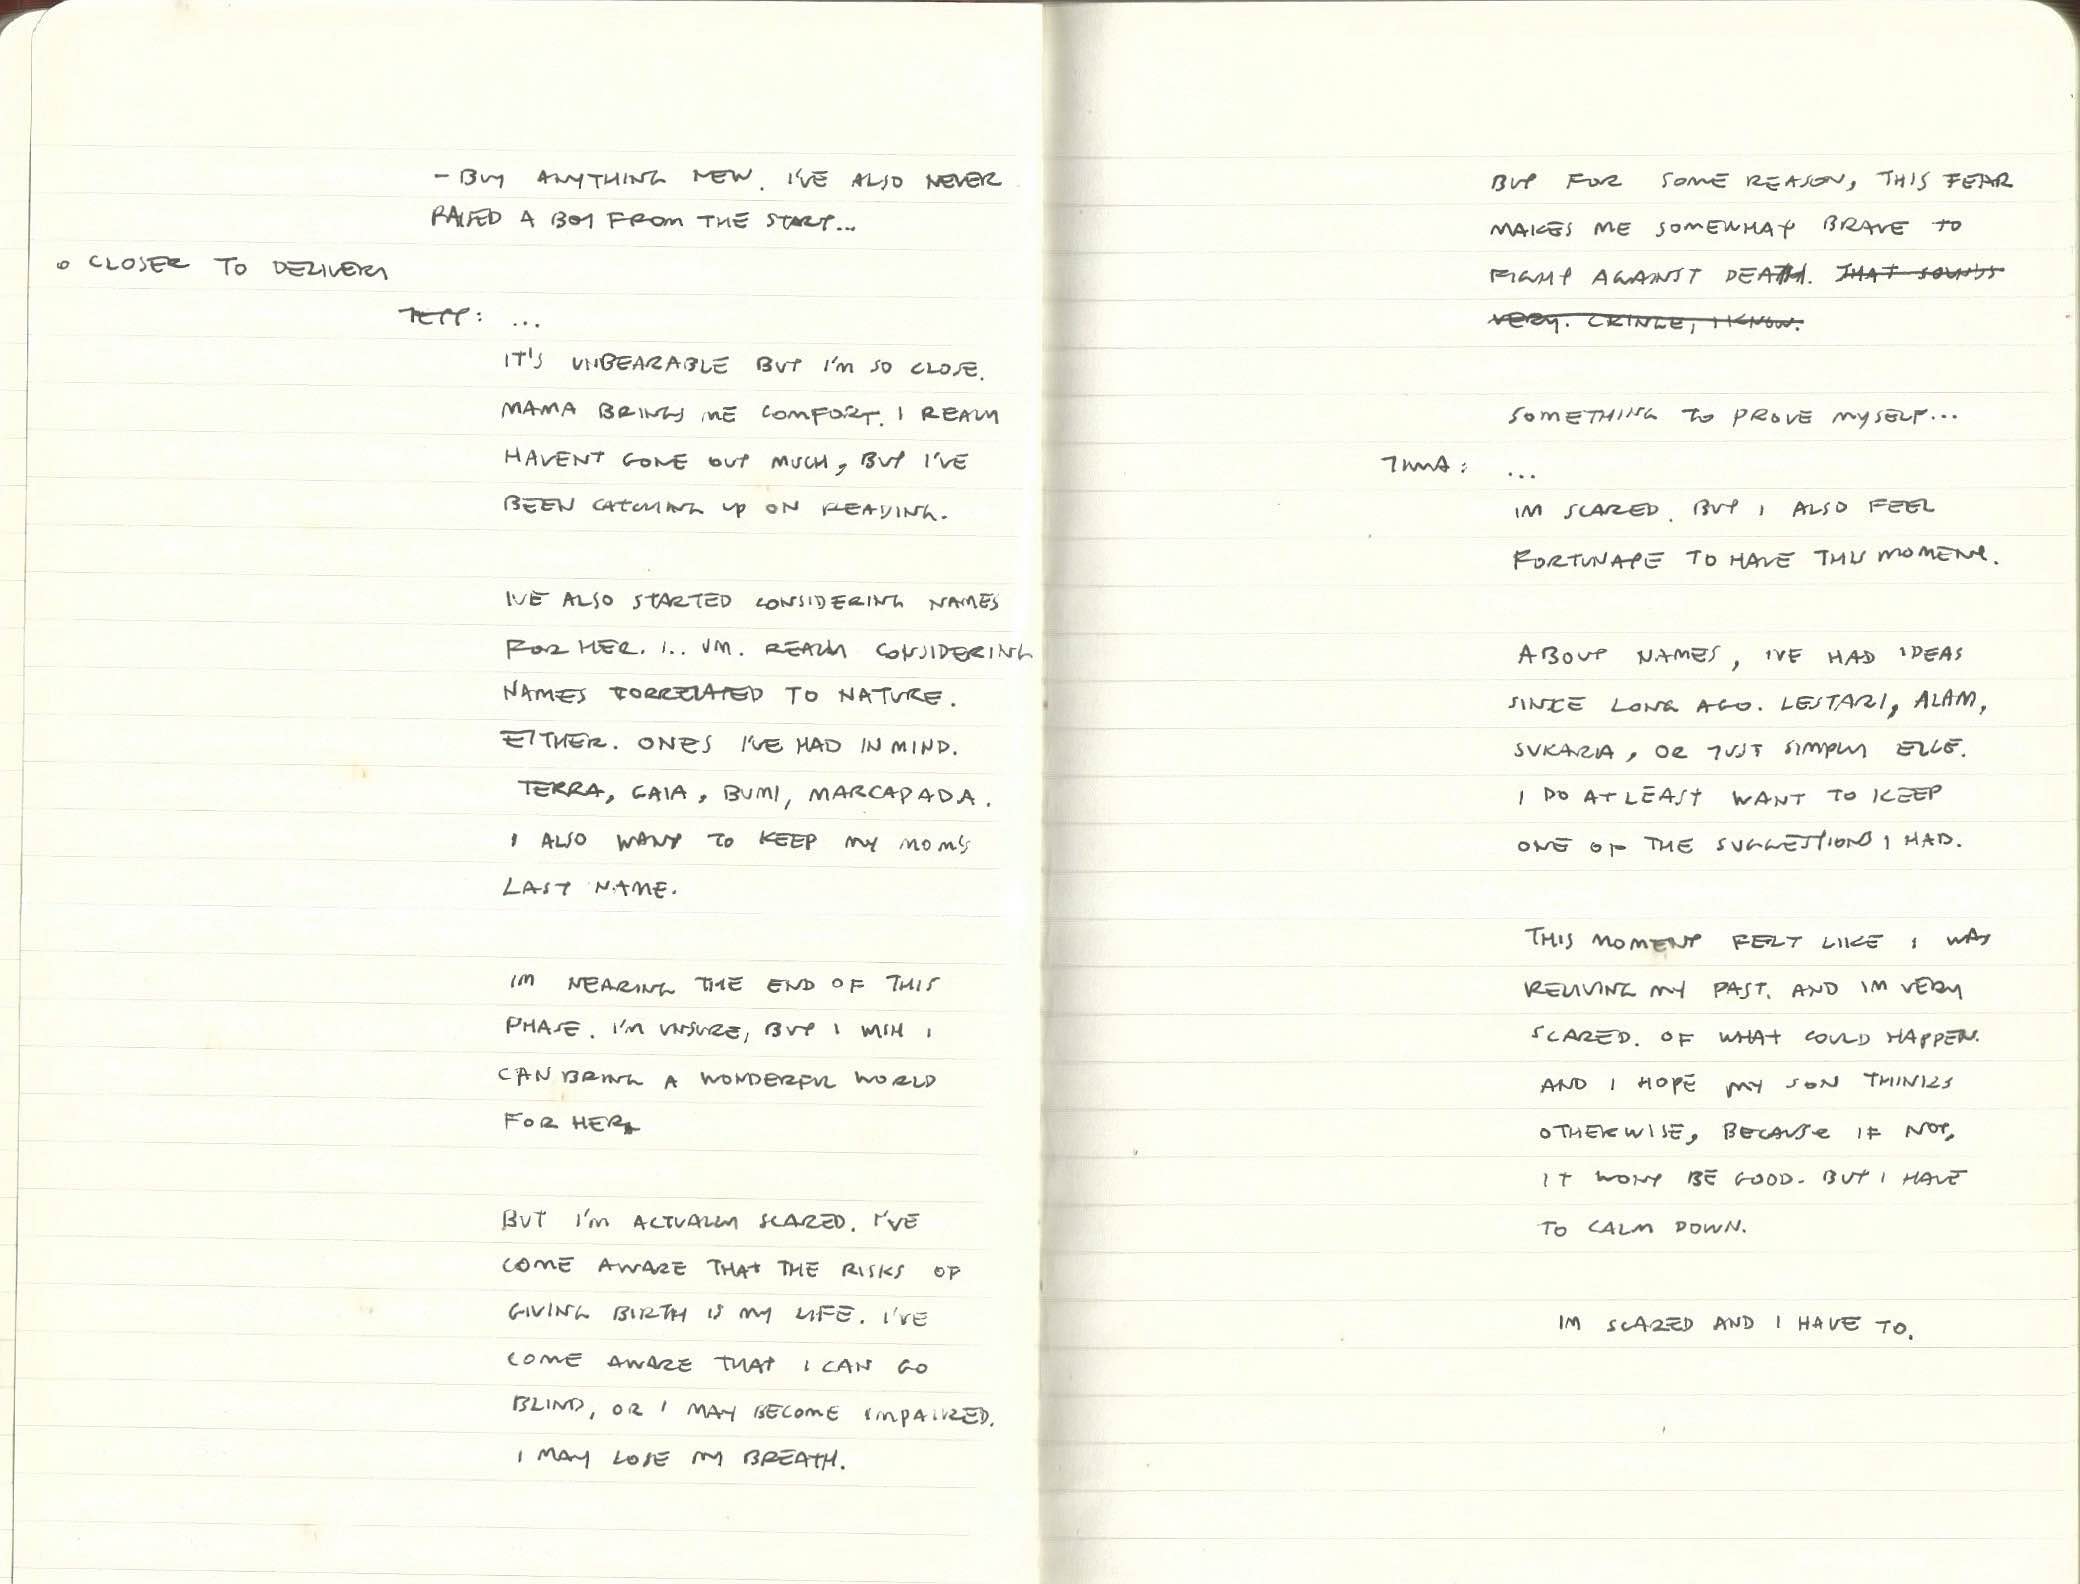 - BUY ANYTHING NEW. I'VE ALSO NEVER
RAISED A BOY FROM THE START...
o CLOSER TO DELIVERY
: ...
IT'S UNBEARABLE BUT I'M SO CLOSE.
MAMA BRINGS ME COMFORT. I REALLY
HAVENT GONE OUT MUCH, BUT I'VE
BEEN CATCHING UP ON READING.
IVE ALSO STARTED CONSIDERING NAMES
FOR HER. I.. UM. REALLY CONSIDERING
NAMES CORRELATED TO NATURE.
EITHER. ONES I'VE HAD IN MIND.
TERRA, GAIA, BUMI, MARCAPADA.
I ALSO WANT TO KEEP MY MOM'S
LAST NAME.
IM NEARING THE END OF THIS
PHASE. I'M UNSURE, BUT I WISH I
CAN BRING A WONDERFUL WORLD
FOR HER.
BUT I'M ACTUALLY SCARED. I'VE
COME AWARE THAT THE RISKS OF
GIVING BIRTH IS MY LIFE. I'VE
COME AWARE THAT I CAN GO
BLIND, OR I MAY BECOME IMPAIRED.
I MAY LOSE MY BREATH.
BUT FOR SOME REASON, THIS FEAR
MAKES ME SOMEWHAT BRAVE TO
FIGHT AGAINST DEATH. THAT SOUNDS
VERY. CRINGE, I KNOW.
SOMETHING TO PROVE MYSELF...
: ...
IM SCARED. BUT I ALSO FEEL
FORTUNATE TO HAVE THIS MOMENT.
ABOUT NAMES, IVE HAD IDEAS
SINCE LONG AGO. LESTARI, ALAM,
SUKARIA, OR JUST SIMPLY ELLE.
I DO AT LEAST WANT TO KEEP
ONE OF THE SUGGESTIONS I HAD.
THIS MOMENT FELT LIKE I WAS
RELIVING MY PAST. AND IM VERY
SCARED. OF WHAT COULD HAPPEN.
AND I HOPE MY SON THINKS
OTHERWISE, BECAUSE IF NOT,
IT WONT BE GOOD. BUT I HAVE
TO CALM DOWN.
IM SCARED AND I HAVE TO.